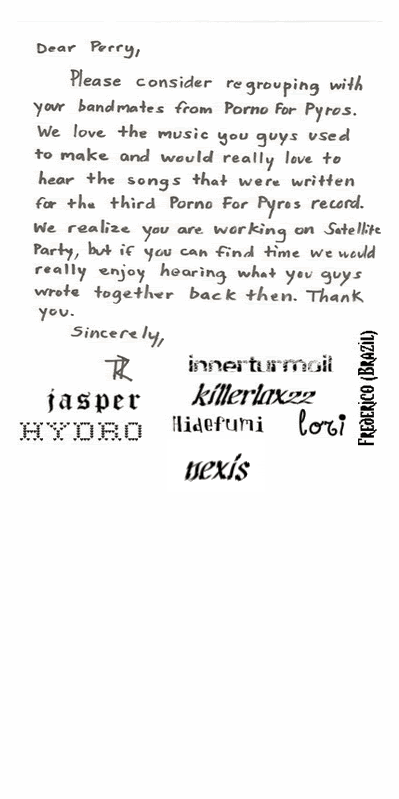 Dear Perry,
Please consider regrouping with
your bandmates from Porno For Pyros.
We love the music you guys used
to make and would really love to
hear the songs that were written
for the third Porno For Pyros record.
We realize you are working on Satellite
Party, but if you can find time we would
really enjoy hearing what you guys
wrote together back then. Thank
you.
Sincerely,
innerturmoil
jasper
killerlaxzz
HYDRO
Hidefumi
lori
nexis
Frederico (Brazil)